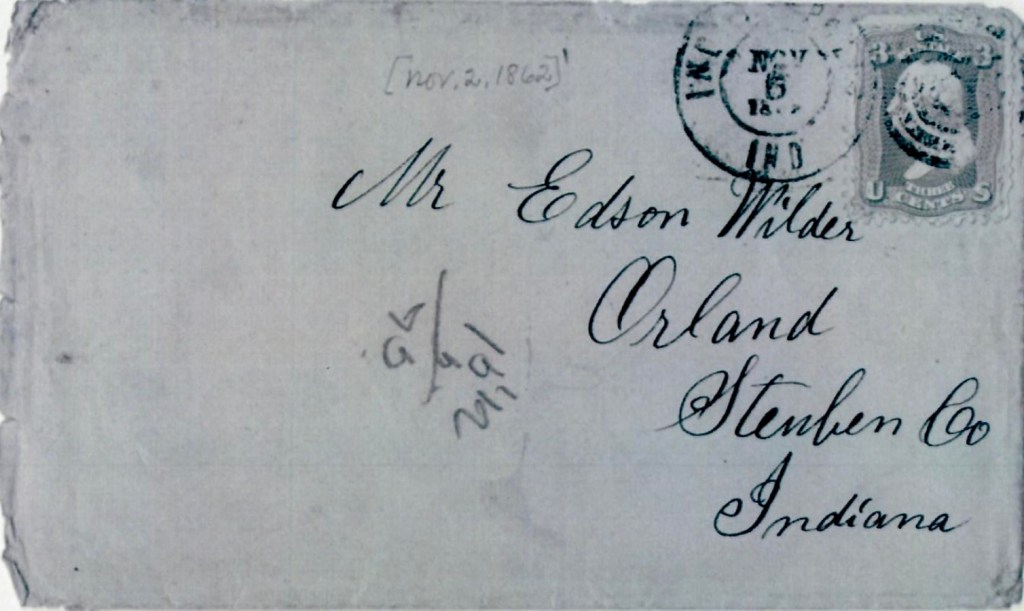 [Nov. 2, 1862]
NOV
IND
3 3
U THREE CENTS S
Mr Edson Wilder
Orland
Steuben Co
Indiana